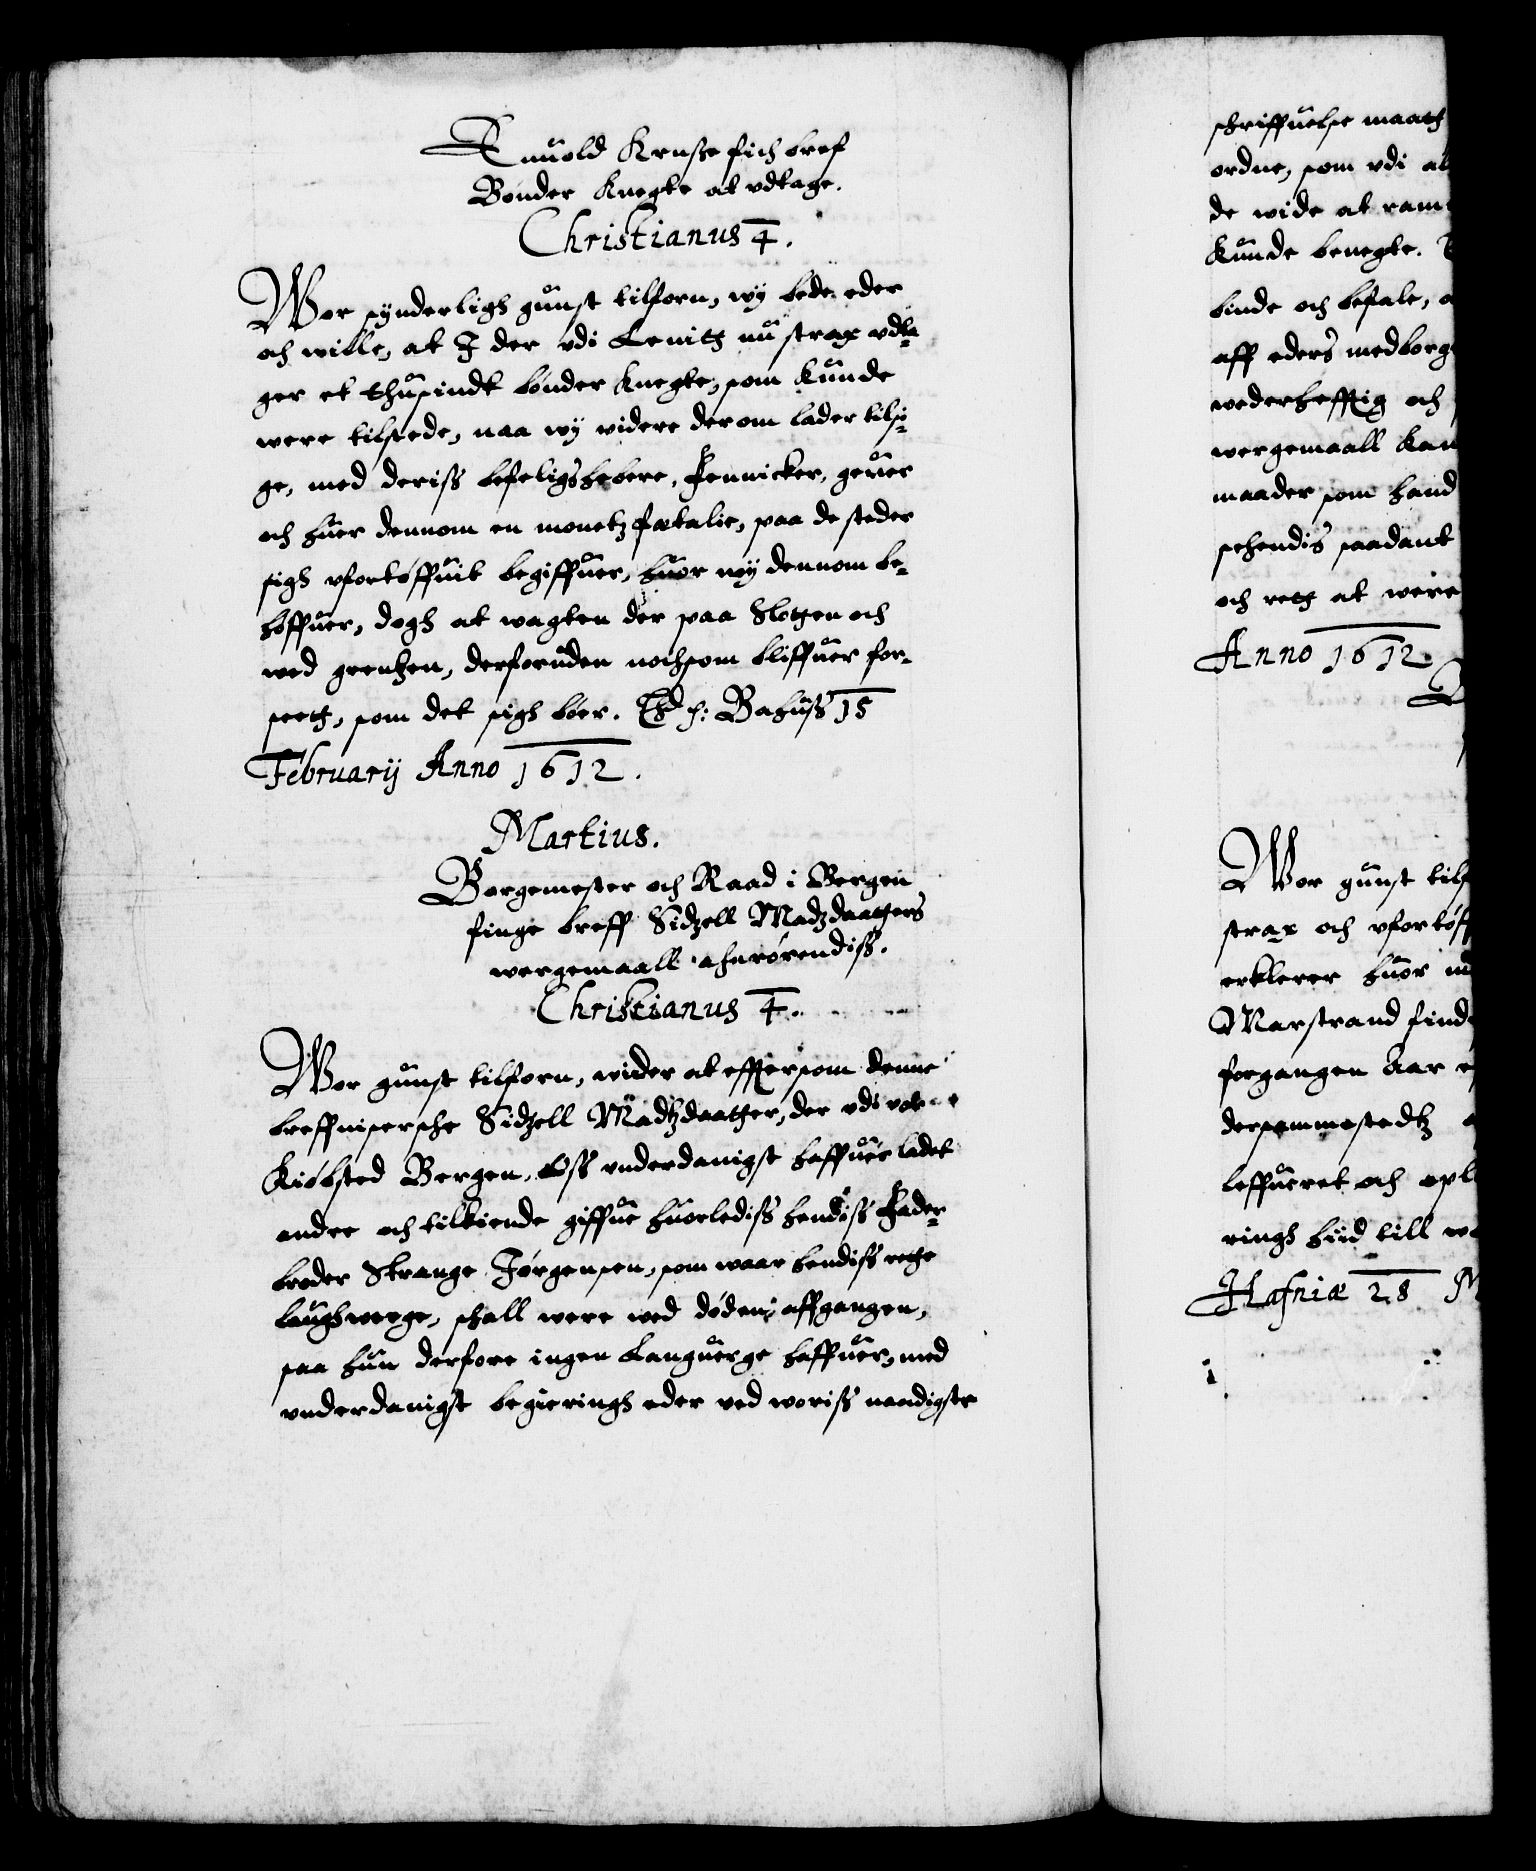 Enuold Krusse fich bref
Bønder Knegte at vdtage.
Christianus 4.
Wor synderligh gunst tilforn, wy bede eder
och wille, at I der vdi Lenitt nu strax vdta-
ger et thusindt bønder Knegte, som kunde
were tilstede, naa wy videre derom lader tilsi-
ge, med deriss befeligshebere, Fennicker, geuer
och huer dennom en monetz fætalie, paa de steder
sigh vfortøffuit begiffuer, huor wy dennom be-
høffuer, dogh at wagten der paa Slottet och
wed grentzen, derforuden nochsom bliffuer for-
seett, som det sigh bøer. Bahuss 15
Februarij Anno 1612.
Martius.
Borgemester och Raad i Bergen
finge breff Sidzell Madzdaatters
wergemaall anrørendiss.
Christianus 4.
Wor gunst tilforn, wider at effter som denne
breffuisersche Sidzell Madtzdaatter, der vdi vor
Kiøbsted Bergen, Oss vnderdanigst haffuer ladet
andre och tilkiende giffue huorlediss hendiss Fader-
broder Strange Jørgensen, som waar hendiss rette
laughwerge, schall were wed døden affgangen,
saa hun derfore ingen Languerge haffuer, med
vnderdanigst begieringh eder ved woriss naadigste
schriffuelse maatt
ordne, som vdi al
de wide at ram
Kunde benegte.
binde och befale, a
aff eders medborg
wederhefftig och
wergemaall kan
maader som hand
schendis saadant
och rett at were
Anno 1612.
Wor gunst tilf
strax och vfortøff
erklerer huor
Marstrand find
forgangen Aar
dersammestedtz
leffueret och opl
ringh hiid till w
Hafniæ 28 M